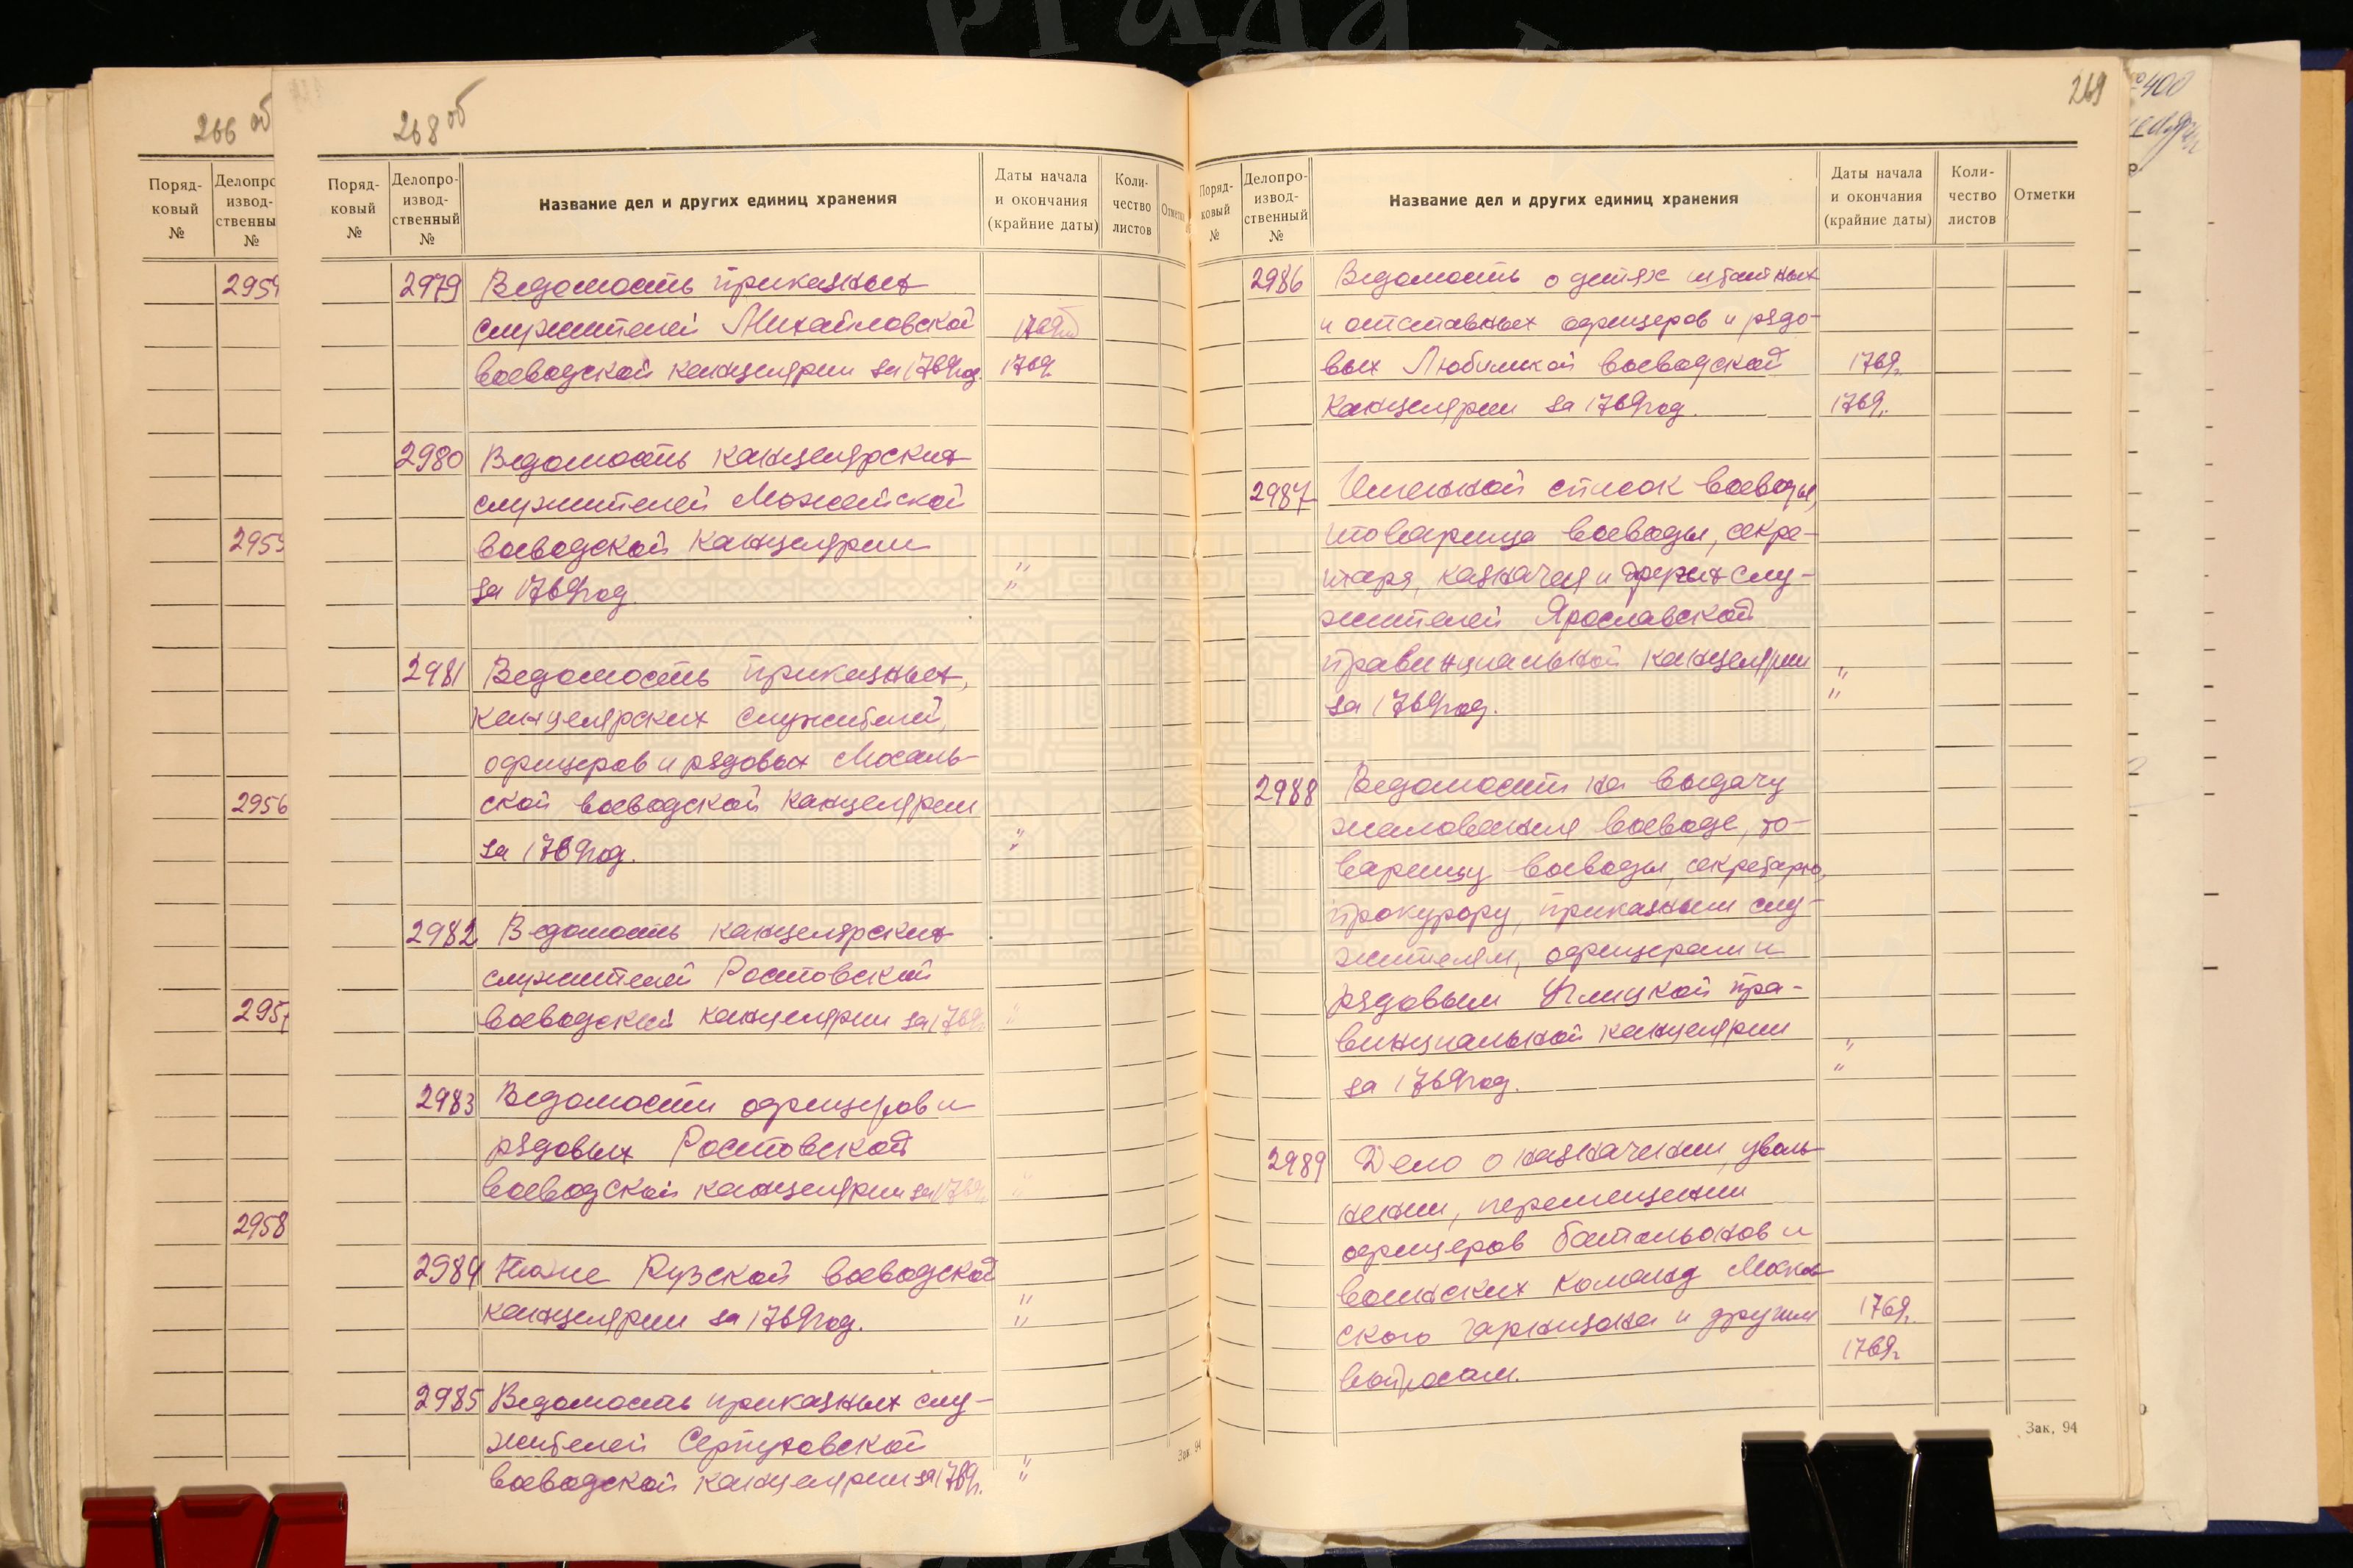 266 об
Поряд-
ковый
№
Делопро
извод-
ственны
№
2955
2956
2958
268 об
Поряд-
ковый
№
Делопро-
извод-
ственный
№
Название дел и других единиц хранения
Даты начала
и окончания
(крайние даты)
Коли-
чество
листов
2979 Ведомость приказных
служителей Михайловской
воеводской канцелярии за 1769 год. 1769
2980 Ведомость канцелярских
служителей Можайской
воеводской канцелярии
за 1769 год. "
"
2981 Ведомость приказных,
канцелярских служителей,
офицеров и рядовых Мосаль-
ской воеводской канцелярии
за 1769 год. "
2982 Ведомость канцелярских
служителей Ростовской
воеводской канцелярии за 1769 "
2983 Ведомости офицеров и
рядовых Ростовской
воеводской канцелярии за 1769 "
2984 Тоже Рузской воеводской
канцелярии за 1769 год. "
"
2985 Ведомость приказных слу-
жителей Серпуховской
воеводской канцелярии за 1769 г. "
Зак. 94
269
Поряд-
ковый
№
Делопро-
извод-
ственный
№
Название дел и других единиц хранения
Даты начала
и окончания
(крайние даты)
Коли-
чество
листов
Отметки
2986 Ведомость о детях штатных
и отставных офицеров и рядо-
вых Любимкой воеводской 1769г.
канцелярии за 1769 год. 1769г.
2987 Именной список воеводы,
товарища воеводы, секре-
таря, казначея и других слу-
жителей Ярославской
правинциальной канцелярии "
за 1769 год. "
2988 Ведомости на выдачу
жалования воеводе, то-
варищу воеводы, секретарю,
прокурору, приказным слу-
жителям, офицерам и
рядовым Углицкой пра-
винциальной канцелярии "
за 1769 год. "
2989 Дело о назначении, уволь-
нении, перемещении
офицеров батальонов и
воинских команд Москов-
ского гарнизона и другим 1769г.
вопросам. 1769г.
Зак. 94